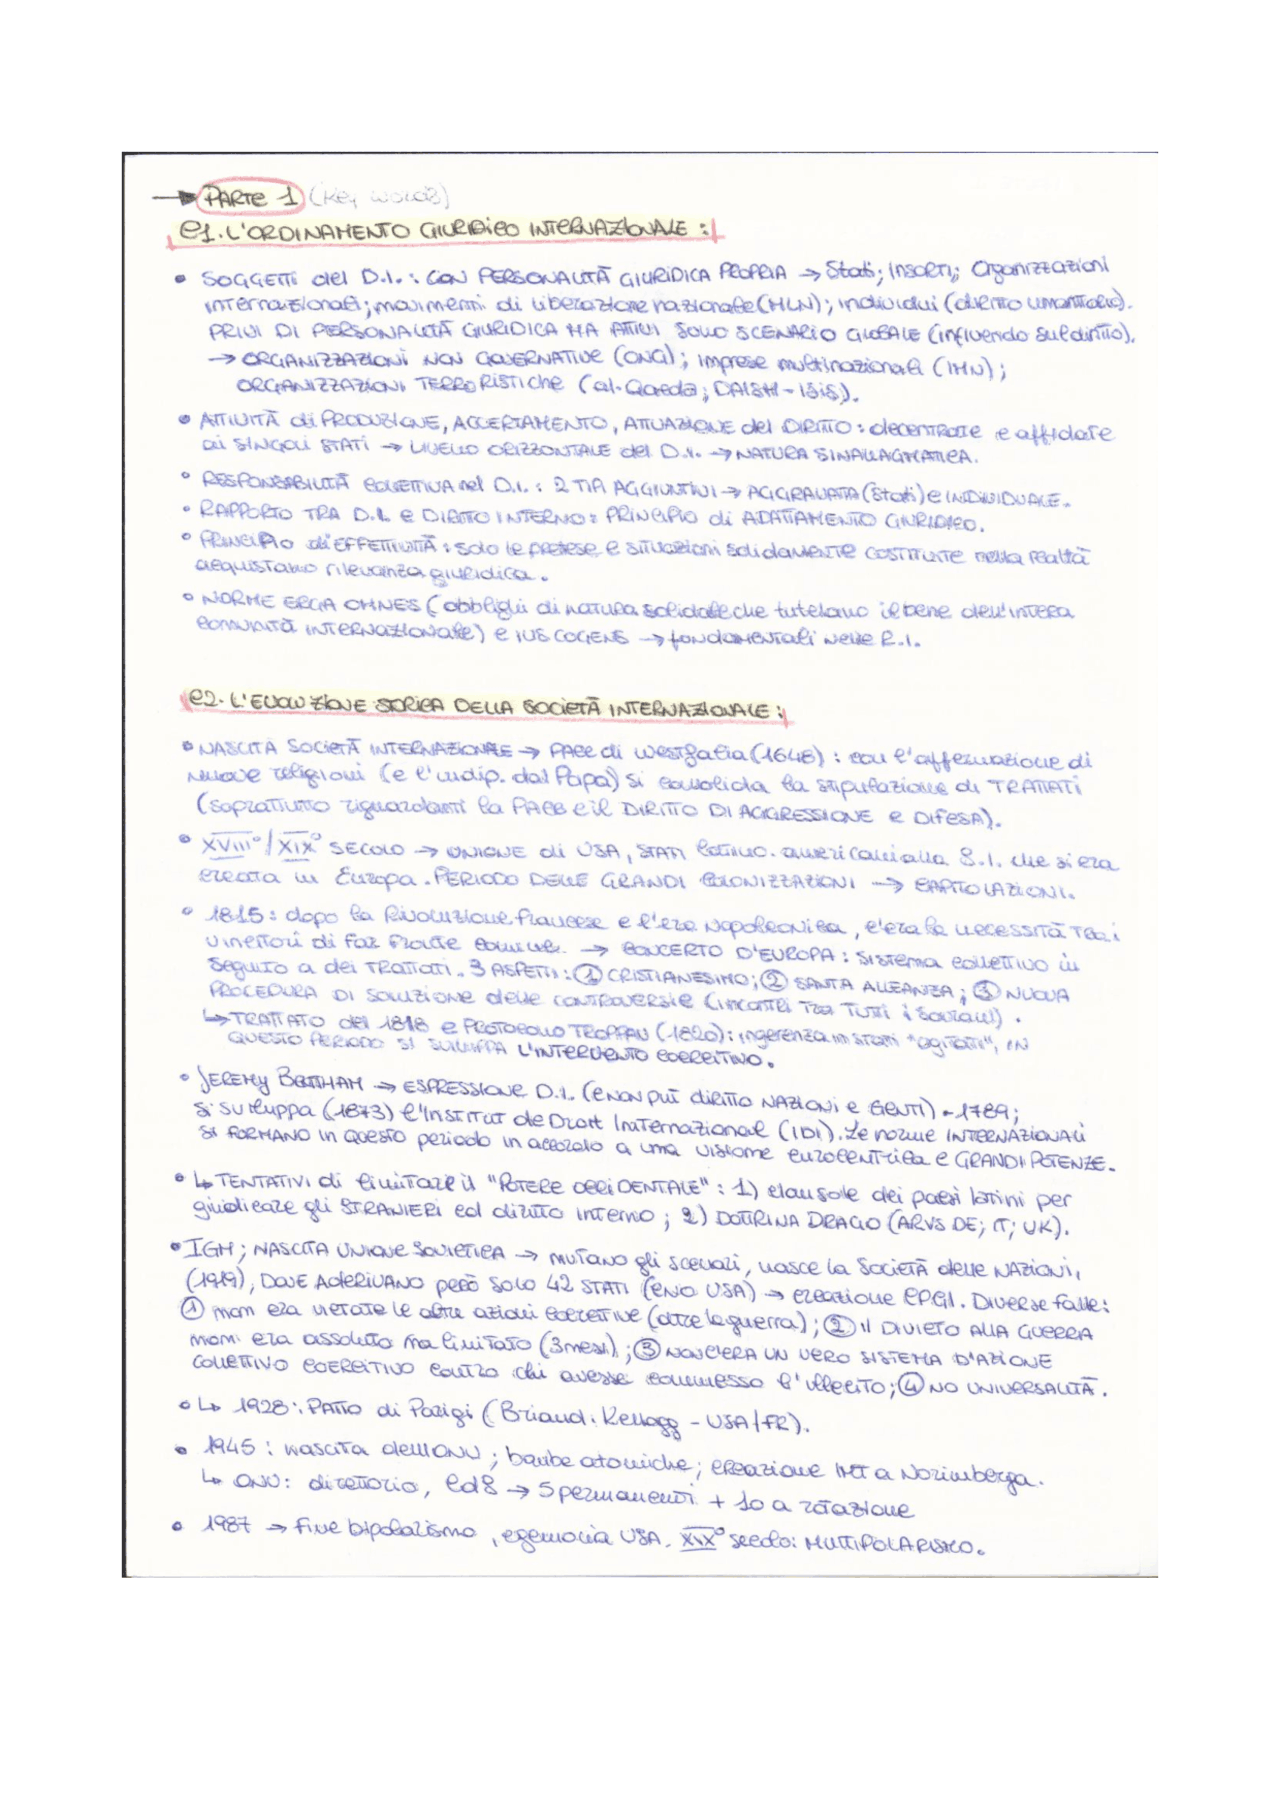 → PARTE 1 (key words)
C1. L'ORDINAMENTO GIURIDICO INTERNAZIONALE:
• SOGGETTI del D.I.: CON PERSONALITÀ GIURIDICA PROPRIA → Stati; Insorti; Organizzazioni
internazionali; movimenti di liberazione nazionale (MLN); individui (diritto umanitario).
PRIVI DI PERSONALITÀ GIURIDICA MA ATTIVI SULLO SCENARIO GLOBALE (influendo sul diritto).
→ ORGANIZZAZIONI NON GOVERNATIVE (ONG); imprese multinazionali (IMN);
ORGANIZZAZIONI TERRORISTICHE (al-Qaeda; DAISH-Isis).
• ATTIVITÀ di PRODUZIONE, ACCERTAMENTO, ATTUAZIONE del DIRITTO: decentrate e affidate
ai SINGOLI STATI → LIVELLO ORIZZONTALE del D.I. → NATURA SINALLAGMATICA.
• RESPONSABILITÀ COLLETTIVA nel D.I.: 2 TIPI AGGIUNTIVI → AGGRAVATA (Stati) e INDIVIDUALE.
• RAPPORTO TRA D.I. E DIRITTO INTERNO: PRINCIPIO di ADATTAMENTO GIURIDICO.
• PRINCIPIO di EFFETTIVITÀ: solo le pretese e SITUAZIONI solidamente COSTITUITE nella realtà
acquistano rilevanza giuridica.
• NORME ERGA OMNES (obblighi di natura solidale che tutelano il bene dell'intera
comunità INTERNAZIONALE) e IUS COGENS → fondamentali nelle R.I.
C2. L'EVOLUZIONE STORICA DELLA SOCIETÀ INTERNAZIONALE:
• NASCITA SOCIETÀ INTERNAZIONALE → PACE di Westfalia (1648): con l'affermazione di
nuove religioni (e l'indip. dal Papa) si consolida la stipulazione di TRATTATI
(soprattutto riguardanti la PACE e il DIRITTO DI AGGRESSIONE e DIFESA).
• XVIII°/XIX° SECOLO → UNIONE di USA, STATI latino-americani alla S.I. che si era
creata in Europa. PERIODO DELLE GRANDI COLONIZZAZIONI → CAPITOLAZIONI.
• 1815: dopo la Rivoluzione francese e l'era Napoleonica, c'era la necessità tra i
vincitori di far fronte comune. → CONCERTO D'EUROPA: sistema collettivo in
seguito a dei TRATTATI. 3 ASPETTI: ① CRISTIANESIMO; ② SANTA ALLEANZA; ③ NUOVA
PROCEDURA DI SOLUZIONE delle CONTROVERSIE (incontri TRA TUTTI i Sovrani).
↳ TRATTATO del 1818 e PROTOCOLLO TROPPAU (1820): ingerenza in stati "agitati", IN
QUESTO PERIODO SI SVILUPPA L'INTERVENTO COERCITIVO.
• JEREMY BENTHAM → ESPRESSIONE D.I. (e non più diritto NAZIONI e GENTI) - 1789;
si sviluppa (1873) l'Institut de Droit International (IDI). Le norme INTERNAZIONALI
SI FORMANO in questo periodo in accordo a una visione eurocentrica e GRANDI POTENZE.
• ↳ TENTATIVI di limitare il "POTERE OCCIDENTALE": 1) clausole dei paesi latini per
giudicare gli STRANIERI col diritto interno; 2) DOTTRINA DRAGO (ARVS DE; IT; UK).
• IGM; NASCITA UNIONE SOVIETICA → mutano gli scenari, nasce la Società delle NAZIONI,
(1919), DOVE ADERIVANO però SOLO 42 STATI (e NO USA) → creazione CPGI. Diverse falle:
① non era vietate le altre azioni coercitive (oltre la guerra); ② il DIVIETO ALLA GUERRA
non era assoluto ma limitato (3 mesi); ③ NON C'ERA UN VERO SISTEMA D'AZIONE
COLLETTIVO COERCITIVO contro chi avesse commesso l'illecito; ④ NO UNIVERSALITÀ.
• ↳ 1928: PATTO di Parigi (Briand-Kellogg - USA/FR).
• 1945: nascita dell'ONU; bombe atomiche; creazione IMT a Norimberga.
↳ ONU: direttorio, CdS → 5 permanenti + 10 a rotazione
• 1987 → fine bipolarismo, egemonia USA. XIX° secolo: MULTIPOLARISMO.